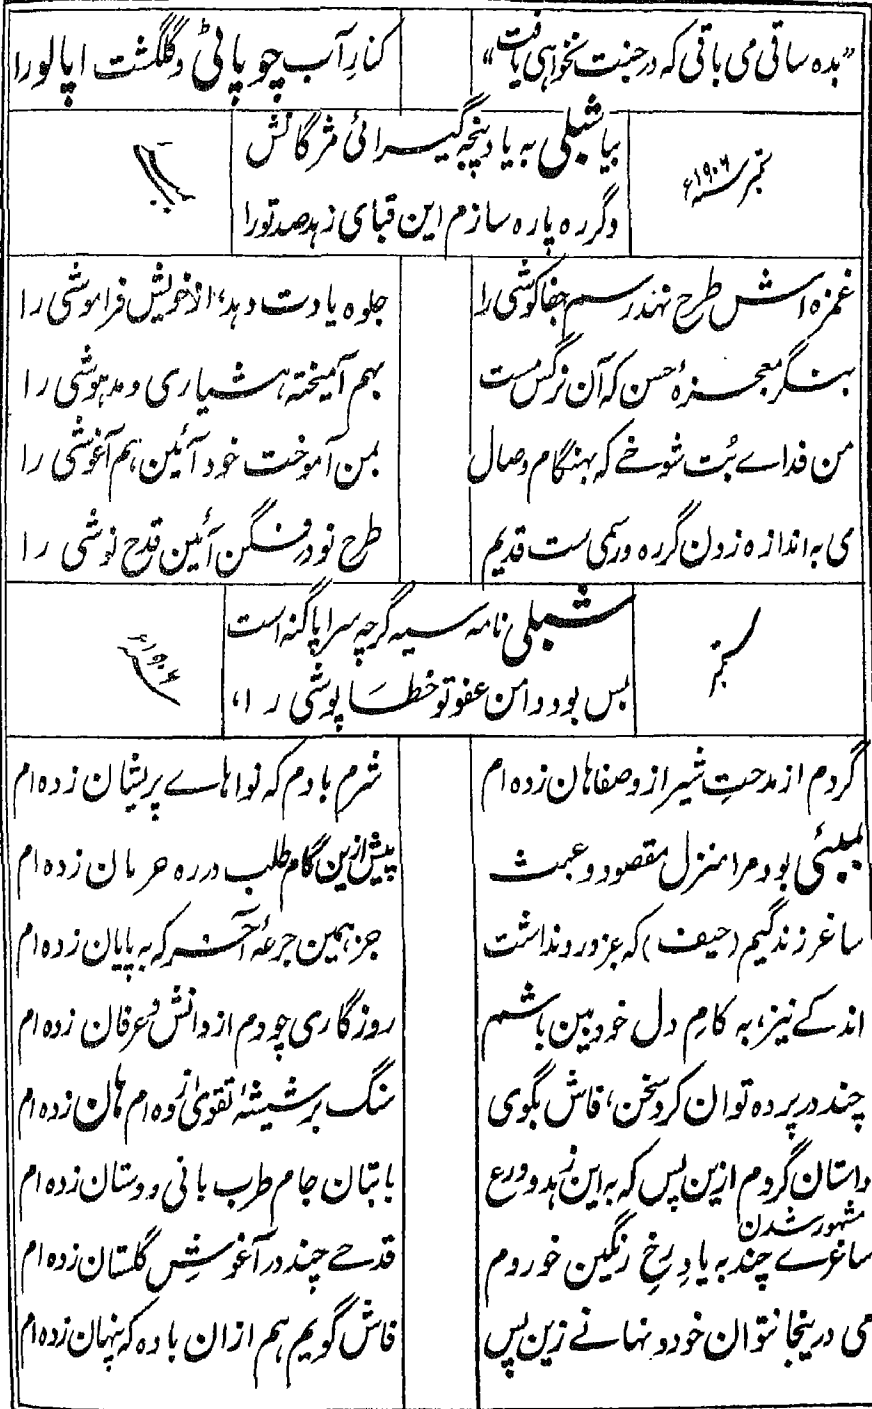 "بده ساقی می باقی که در جنت نخواهی یافت" کنارِ آب چوپاٹی و گلگشت اپالو را
بیا شبلی به یاد پنجه گیرائی مژگانش
ستمبر سنه ۱۹۰۶ء
دگر ره پاره سازم این قبای زهد صد تو را
غمزه اش طرح نهد رسم جفا کوشی را جلوه یادت دهد، از خویش فراموشی را
بنگر معجزۀ حسن که آن نرگس مست بهم آمیخته هشیاری و مدهوشی را
من فداے بُت شوخے که بهنگام وصال بمن آموخت خود آئین هم آغوشی را
می به اندازه زدن گر ره و رسمی ست قدیم طرح نو در فگن آئین قدح نوشی را
شبلی نامه سیه گرچه سراپا گنه است
ستمبر سنه ۱۹۰۶ء
بس بود دامن عفو تو خطا پوشی را،
گردم از مدحتِ شیراز و صفاهان زده ام شرم بادم که نواهاے پریشان زده ام
بمبئی بود مرا منزل مقصود و عبث پیش ازین گام طلب در ره حرمان زده ام
ساغر زندگیم (حیف) که جز درد نداشت جز همین جرعۀ آخر که به پایان زده ام
اندکے نیز، به کامِ دل خود بین باشم روزگاری چو دم از دانش و عرفان زده ام
چند در پرده توان کرد سخن، فاش بگوی سنگ بر شیشۀ تقوی زده ام هان زده ام
داستان گردم ازین پس که به این زهد و ورع با بتان جام طرب بانی و دستان زده ام
مشهور شدن
ساغرے چند به یادِ رخِ رنگین خوردم قدحے چند در آغوشِ گلستان زده ام
می درینجا نتوان خورد و نهانے زین پس فاش گویم هم ازان باده که پنهان زده ام